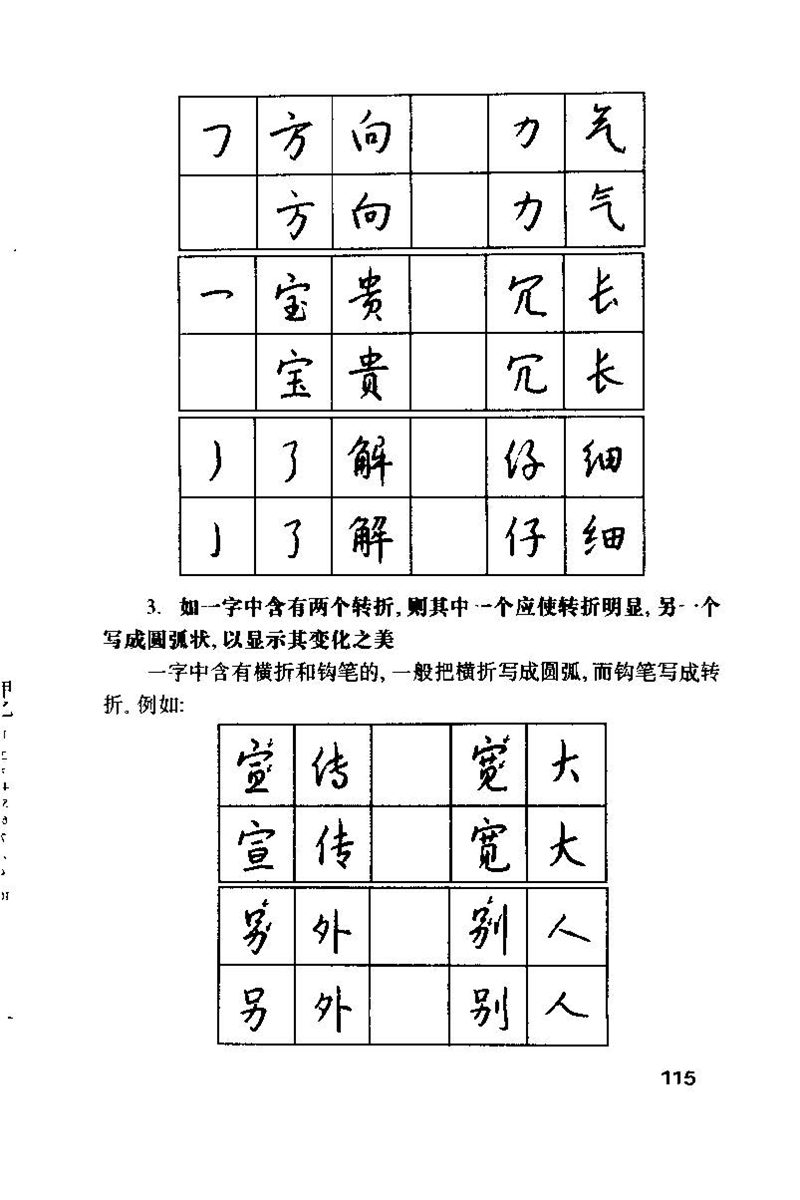 ㇆ 方 向 力 气
方 向 力 气
乛 宝 贵 冗 长
宝 贵 冗 长
亅 了 解 仔 细
亅 了 解 仔 细
3. 如一字中含有两个转折,则其中一个应使转折明显,另一个
写成圆弧状,以显示其变化之美
一字中含有横折和钩笔的,一般把横折写成圆弧,而钩笔写成转
折。例如:
宣 传 宽 大
宣 传 宽 大
另 外 别 人
另 外 别 人
115